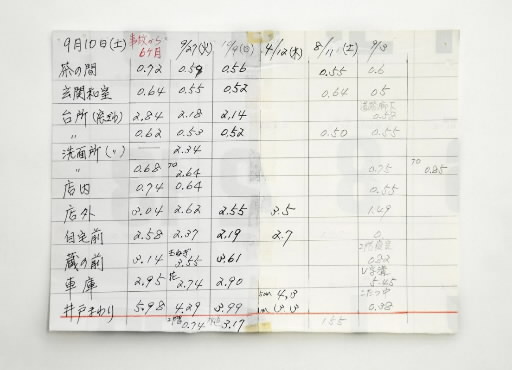 9月10日(土) 事故から6ヶ月 9/27(火) 4/12(木) 8/11(土) 9/13
茶の間 0.72 0.59 0.56 0.55 0.6
玄関和室 0.64 0.55 0.52 0.64 0.5
台所(窓ぎわ) 2.84 2.18 2.14
〃 0.62 0.53 0.52 0.50 0.55
洗面所(〃) — 2.34
〃 0.68 70 2.64 0.75 70 0.85
店内 0.74 0.64 0.55
店外 3.04 2.62 2.55 3.5 1.49
自宅前 2.58 2.37 2.19 2.7 0
蔵の前 3.14 3.55 3.61 0.82
車庫 2.95 2.74 2.90 5.45
井戸まわり 5.98 4.29 3.99 1m 3.13 0.38
0.74 3.17 1.55